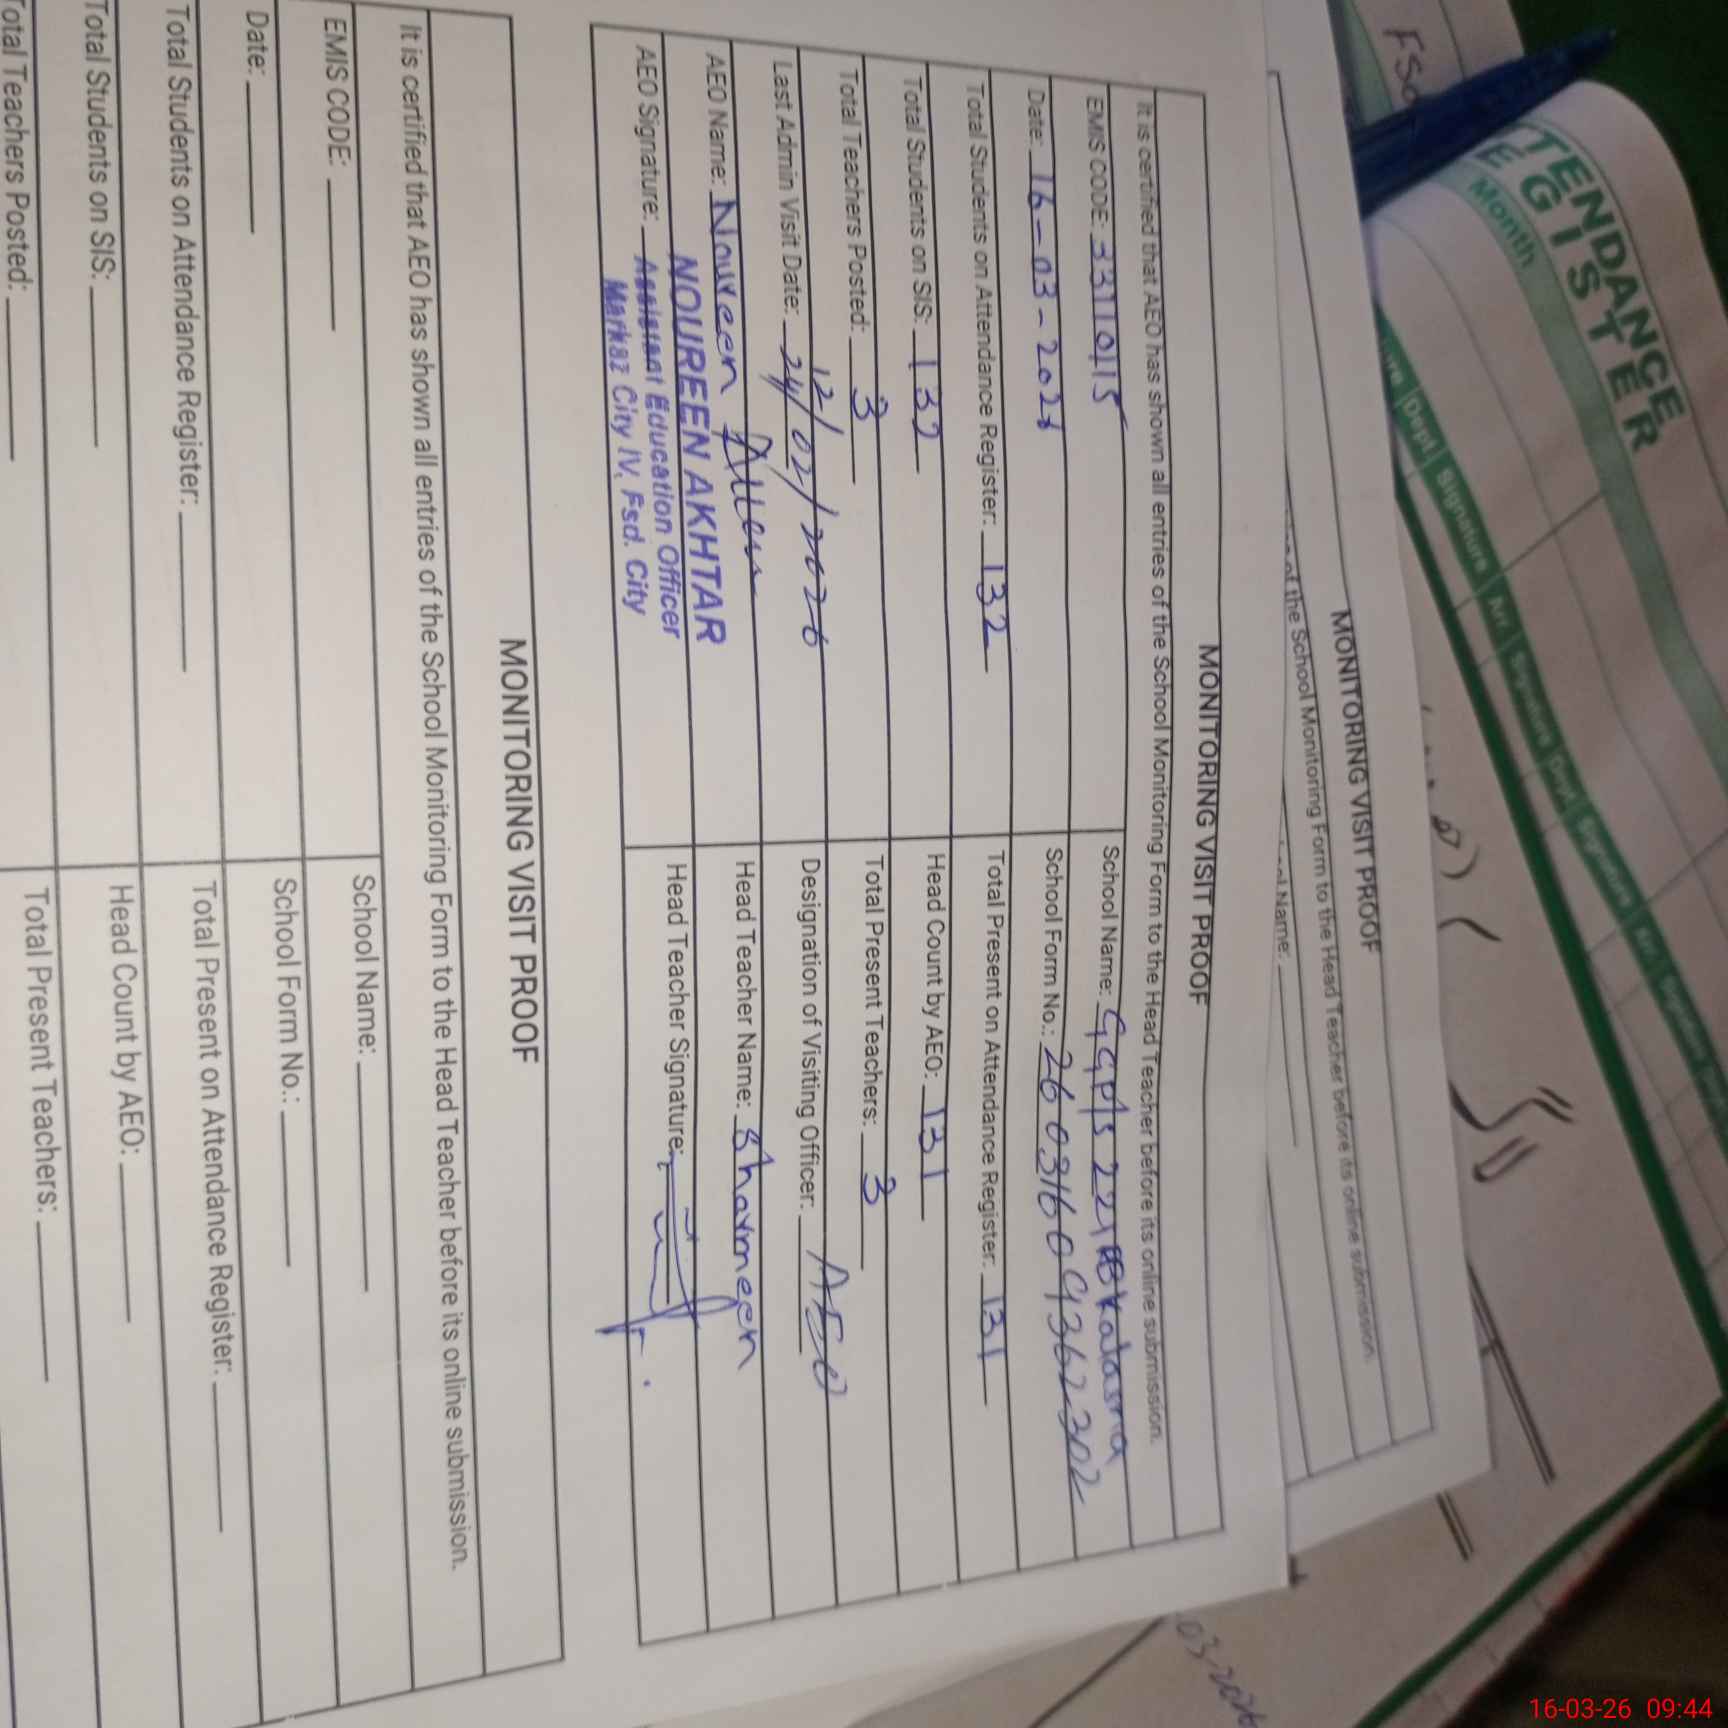 TENDANCE
EGISTER
Month
Dept Signature Arr Signature Dept Signature Arr Signature
MONITORING VISIT PROOF
of the School Monitoring Form to the Head Teacher before its online submission.
Name:
MONITORING VISIT PROOF
It is certified that AEO has shown all entries of the School Monitoring Form to the Head Teacher before its online submission.
EMIS CODE: 33110115 School Name: GGP/S 221 RB Kadarna
Date: 16-03-2026 School Form No.: 26031609362302
Total Students on Attendance Register: 132 Total Present on Attendance Register: 131
Total Students on SIS: 132 Head Count by AEO: 131
Total Teachers Posted: 3 Total Present Teachers: 3
Last Admin Visit Date: 12/02/2026 Designation of Visiting Officer: AEO
AEO Name: Noureen Head Teacher Name: Sharmeen
AEO Signature: Head Teacher Signature:
NOUREEN AKHTAR
Assistant Education Officer
Markaz City IV, Fsd. City
MONITORING VISIT PROOF
It is certified that AEO has shown all entries of the School Monitoring Form to the Head Teacher before its online submission.
EMIS CODE: School Name:
Date: School Form No.:
Total Students on Attendance Register: Total Present on Attendance Register:
Total Students on SIS: Head Count by AEO:
Total Teachers Posted: Total Present Teachers:
16-03-26 09:44